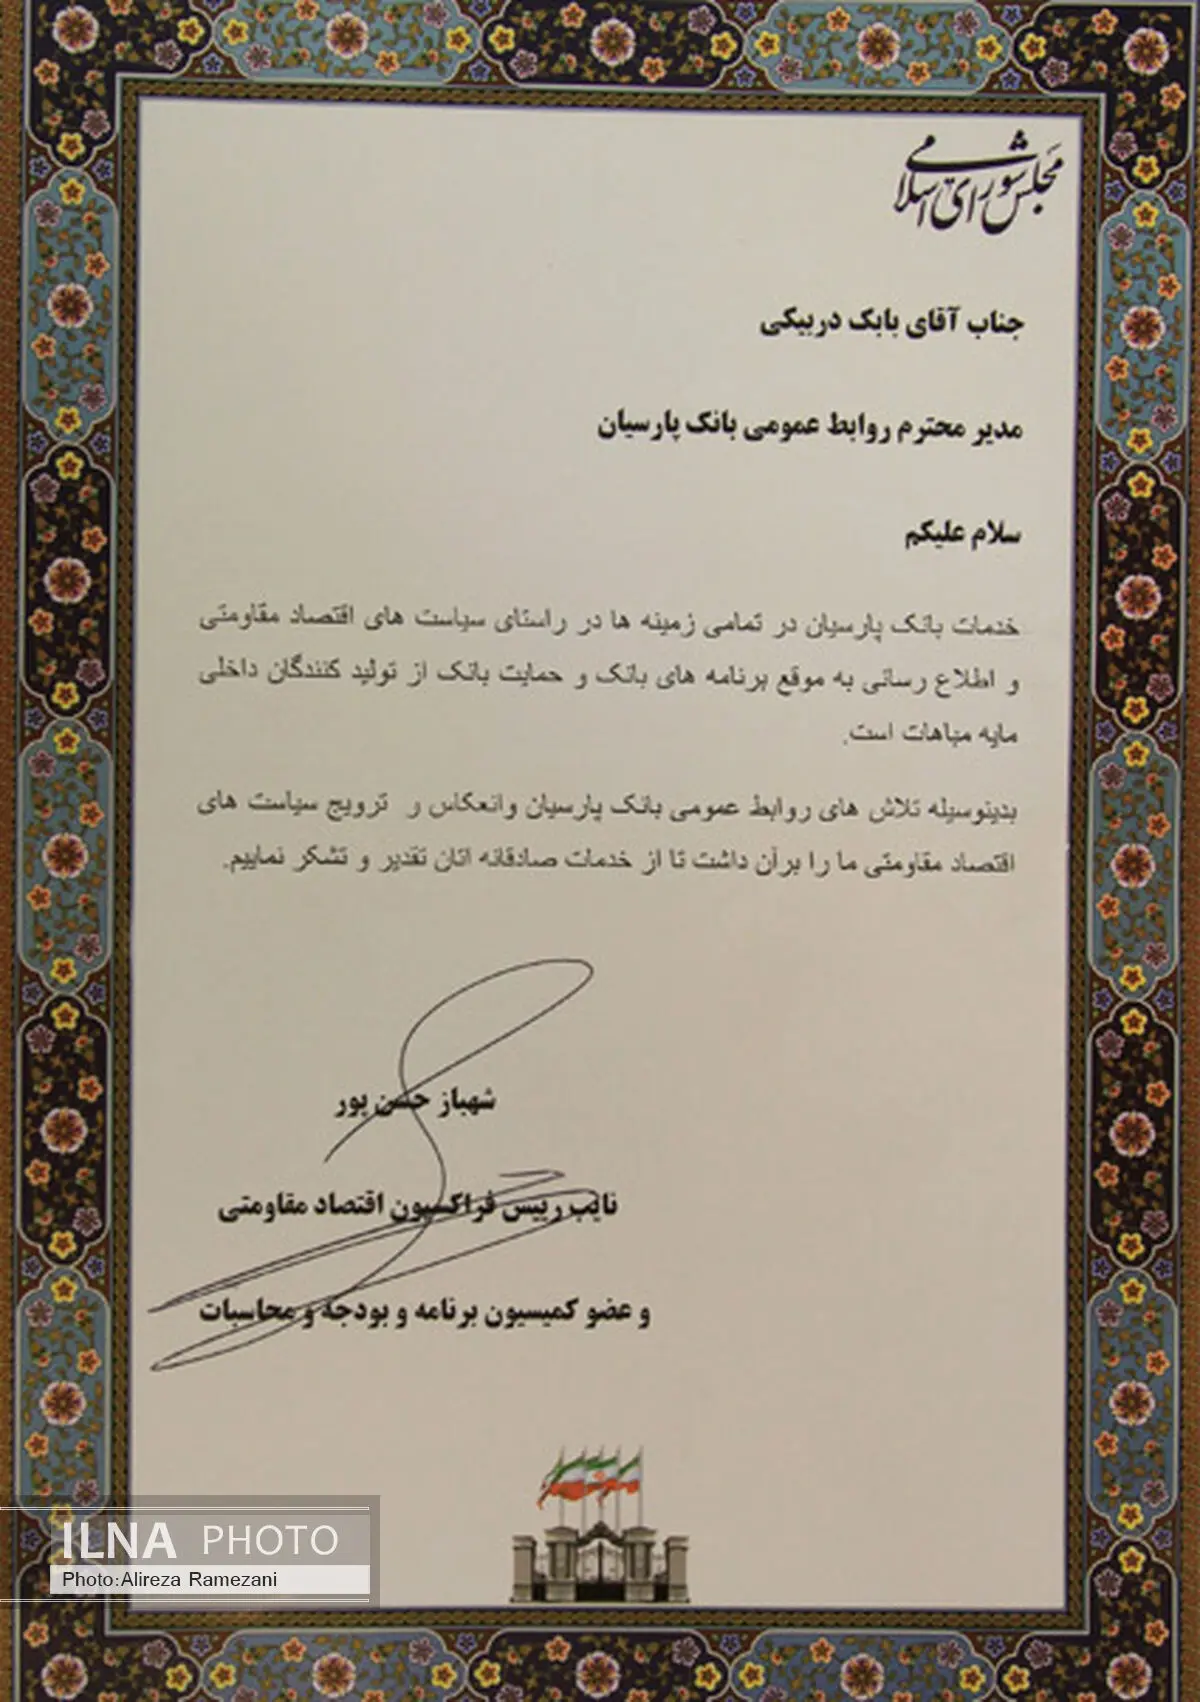 مجلس شورای اسلامی
جناب آقای بابک دربیکی
مدیر محترم روابط عمومی بانک پارسیان
سلام علیکم
خدمات بانک پارسیان در تمامی زمینه ها در راستای سیاست های اقتصاد مقاومتی
و اطلاع رسانی به موقع برنامه های بانک و حمایت بانک از تولید کنندگان داخلی
مایه مباهات است.
بدینوسیله تلاش های روابط عمومی بانک پارسیان وانعکاس و ترویج سیاست های
اقتصاد مقاومتی ما را برآن داشت تا از خدمات صادقانه اتان تقدیر و تشکر نماییم.
شهباز حسن پور
نایب رییس فراکسیون اقتصاد مقاومتی
و عضو کمیسیون برنامه و بودجه و محاسبات
ILNA PHOTO
Photo:Alireza Ramezani